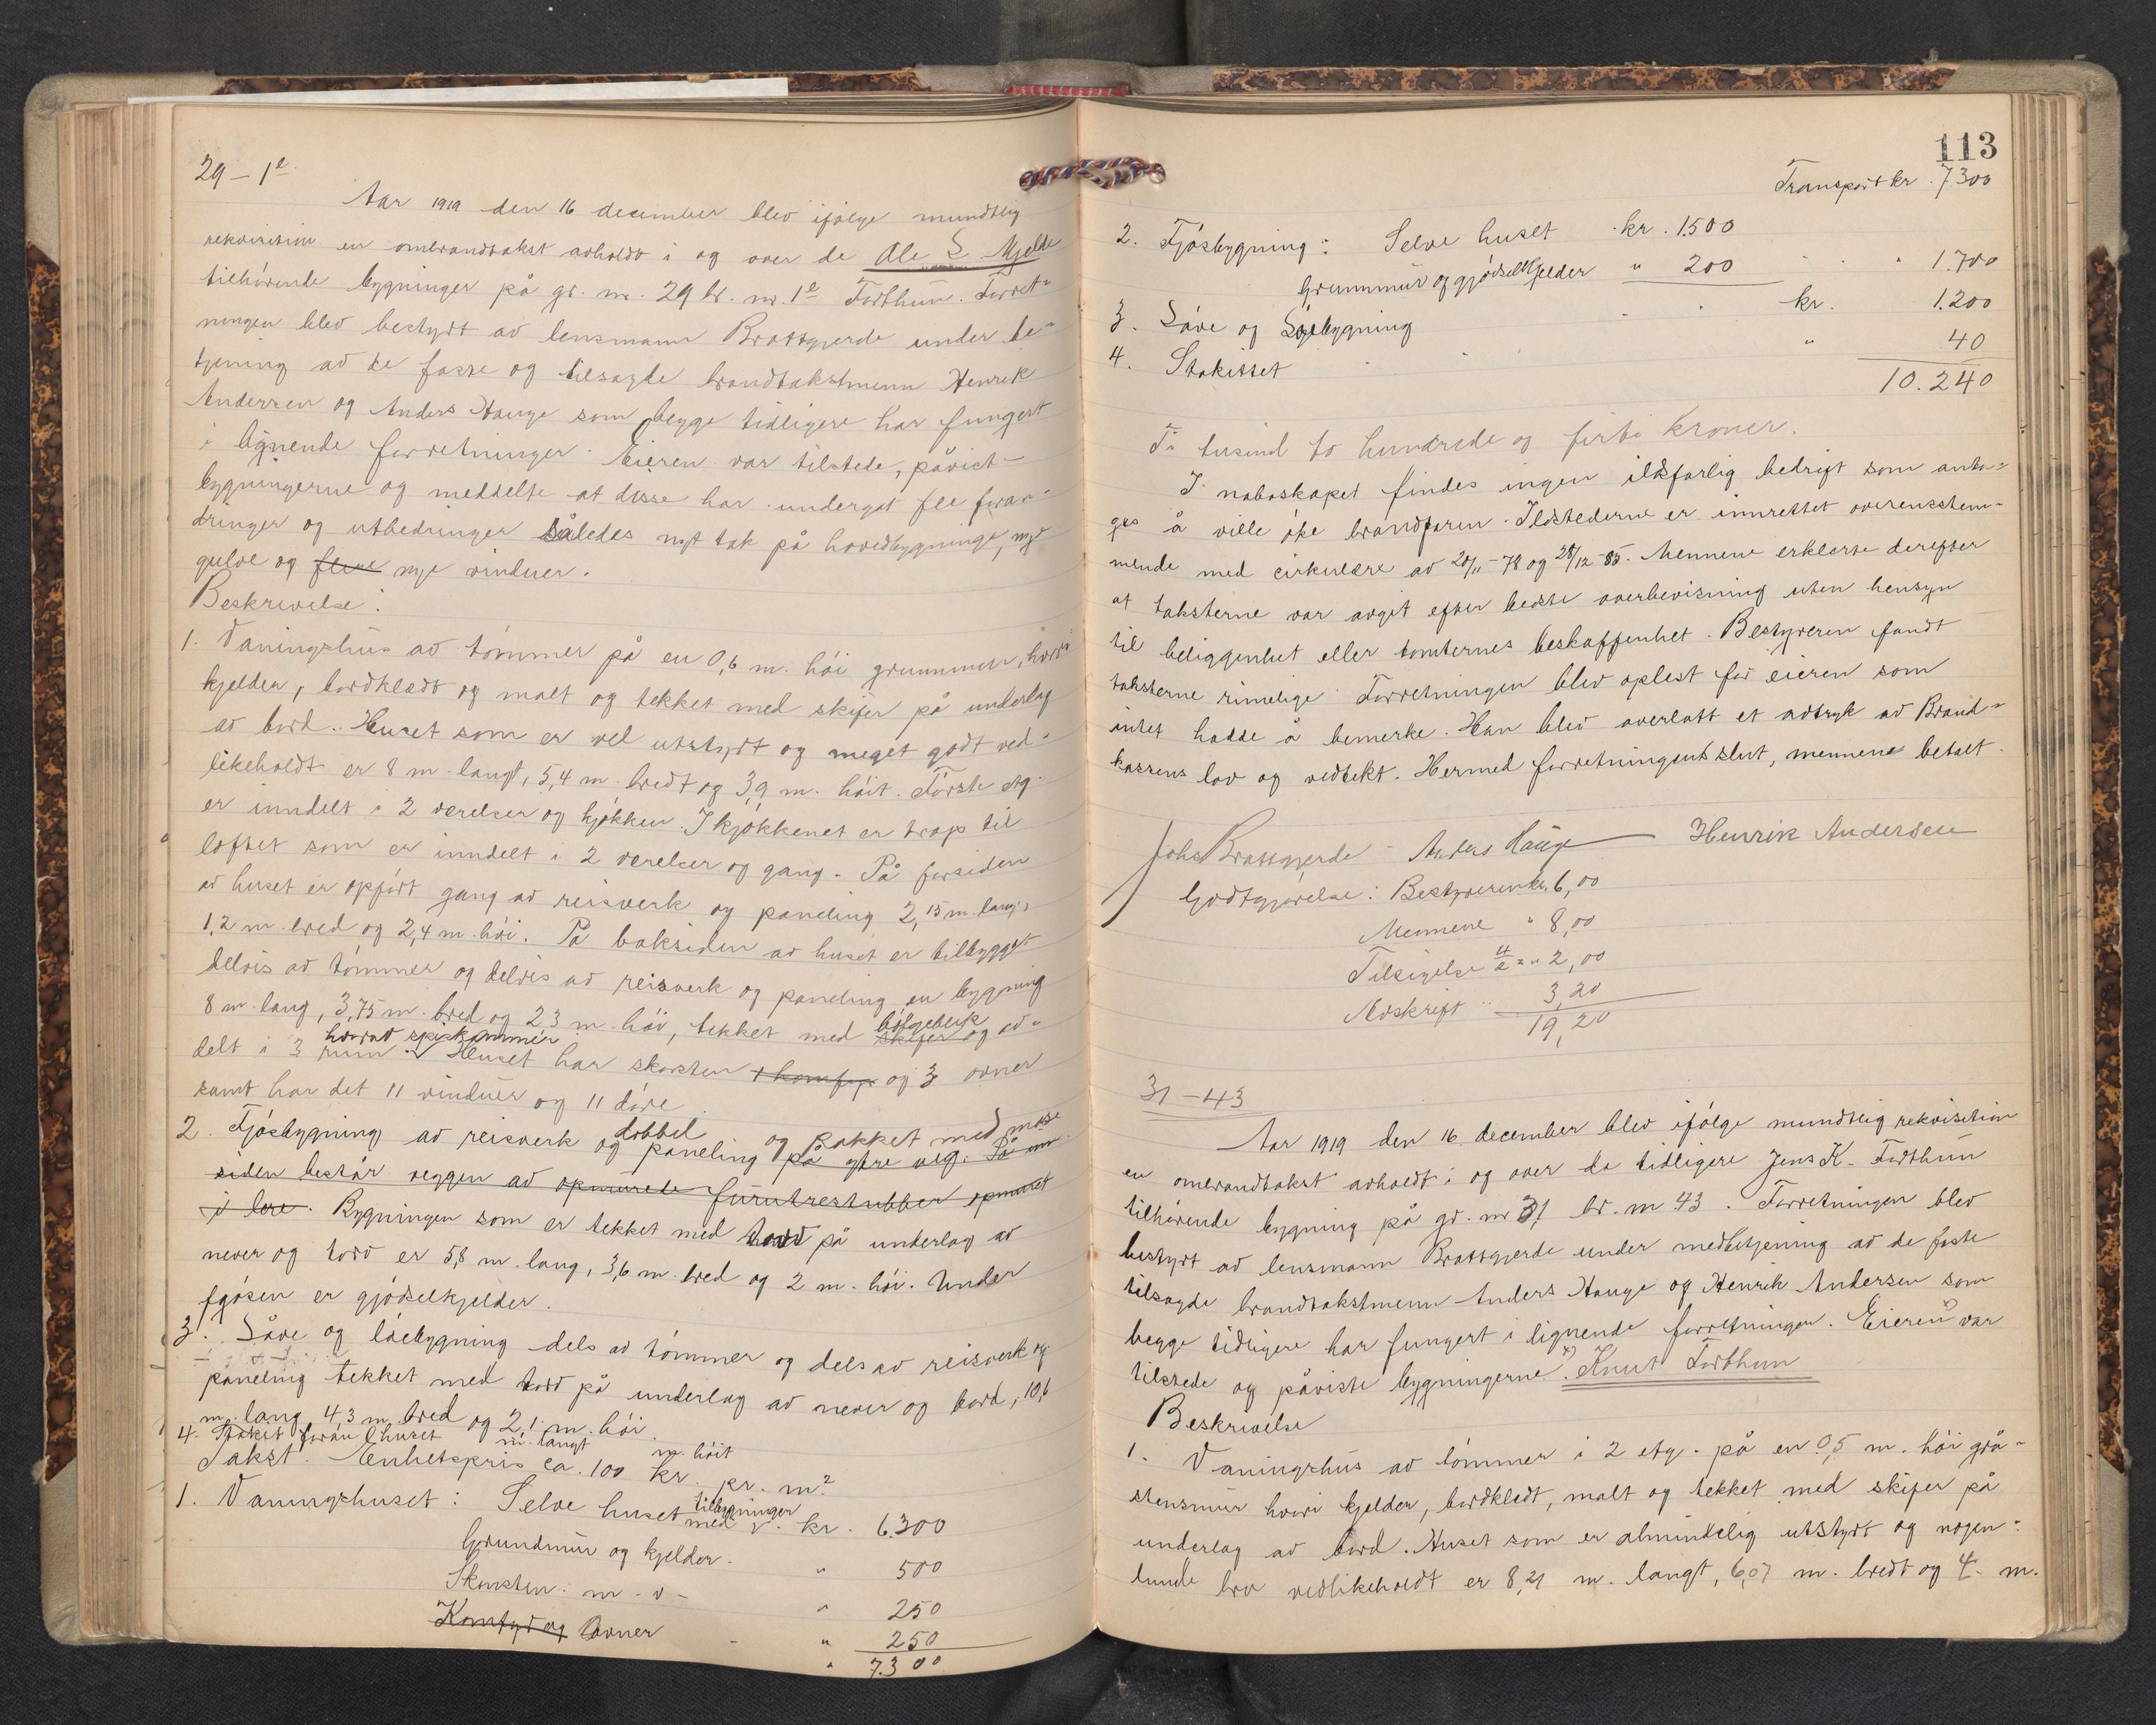 29 – 1e
Aar 1919 den 16 december blev ifølge mundtlig
rekvisition en ombrandtakst avholdt i og over de Ole S. Mjelde
tilhørende bygninger på gr. nr. 29 br. nr. 1e Forthun. Forret-
ningen blev bestyrt av lensmann Brattgjerde under be-
tjening av de faste og tilsagte brandtakstmenn Henrik
Andersen og Anders Hauge som begge tidligere har fungert
i lignende forretninger. Eieren var tilstede, påvist
bygningerne og meddelte at disse har undergåt fle foran-
dringer og utbedringer således nyt tak på hovedbygninge, nyt
gulve og flere nye vinduer.
Beskrivelse:
1. Vaningshus av tømmer på en 0,6 m. høi grunnmur, hvori
kjelder, bordklædt og malt og tekket med skifer på underlag
av bord. Huset som er vel utstyrt og meget godt ved-
likeholdt er 8 m. langt, 5,4 m. bredt og 3,9 m. høit. Første etg.
er inndelt i 2 værelser og kjøkken. I kjøkkenet er trap til
loftet som er inndelt i 2 værelser og gang. På forsiden
av huset er opført gang av reisverk og paneling 2,15 m. lang,
1,2 m. bred og 2,4 m. høi. På baksiden av huset er tilbygget
delvis av tømmer og delvis av reisverk og paneling en bygning
8 m. lang, 3,75 m. bred og 2,3 m. høi, tekket med skifer bølgeblik og av-
delt i 3 rum hvorav spiskammer. Huset har skorsten + komfyr og 3 ovner
samt har det 11 vinduer og 11 døre.
2. Fjøsbygning av reisverk og dobbel paneling og pakket med mose
på ytre veg. På inn-
siden består veggen av opmurede furutrestubber opmuret
i lere. Bygningen som er tekket med torv på underlag av
never og torv er 5,8 m. lang, 3,6 m. bred og 2 m. høi. Under
fjøsen er gjødselkjelder.
3. Låve og løebygning dels av tømmer og dels av reisverk og
paneling tekket med torv på underlag av never og bord, 10,6
m. lang, 4,3 m. bred og 2,1 m. høi.
4. Stakit foran huset m. langt m. høit
Takst. Enhetspris ca. 100 kr. pr. m²
1. Vaningshuset: Selve huset med tilbygninger kr. 6.300
Grundmur og kjelder - " 500
Skorsten: m - v - " 250
Komfyr og Ovner - " 250
" 7.300
113
Transport kr. 7300
2. Fjøsbygning: Selve huset kr. 1500
Grunnmur og gjødselkjelder " 200 " 1.700
3. Låve og Løebygning kr. 1.200
4. Stakittet " 40
10.240
Ti tusind to hundrede og førti kroner.
I naboskapet findes ingen ildsfarlig bedrift som anta-
ges å ville øke brandfaren. Ildstederne er innrettet overensstem-
mende med cirkulære av 20/11-78 og 28/12-85. Mennene erklærte derefter
at taksterne var avgit efter bedste overbevisning uten hensyn
til beliggenhet eller tomternes beskaffenhet. Bestyreren fandt
taksterne rimelige. Forretningen blev oplest for eieren som
intet hadde å bemerke. Han blev overlatt et avtryk av Brand-
kassens lov og vedtekt. Hermed forretningens slut, mennene betalt.
Johs Brattgjerde - Anders Hauge Henrik Andersen
Godtgjørelse: Bestyreren kr. 6,00
Mennene " 8,00
Tilsigelse " 2,00
Avskrift 3,20
19,20
31 – 43
Aar 1919 den 16 december blev ifølge mundtlig rekvisition
en ombrandtakst avholdt i og over de tidligere Jens K. Forthun
tilhørende bygning på gr. nr 31 br. nr 43. Forretningen blev
bestyrt av lensmann Brattgjerde under medbetjening av de faste
tilsagte brandtakstmenn Anders Hauge og Henrik Andersen som
begge tidligere har fungert i lignende forretninger. Eieren x) var
tilstede og påviste bygningerne. x) Knut Forthun
Beskrivelse
1. Vaningshus av tømmer i 2 etg. på en 0,5 m. høi grå-
stensmur hvori kjelder, bordklædt, malt og tekket med skifer på
underlag av bord. Huset som er almindelig utstyrt og nogen-
lunde bra vedlikeholdt er 8,21 m. langt, 6,07 m. bredt og 4 - m.